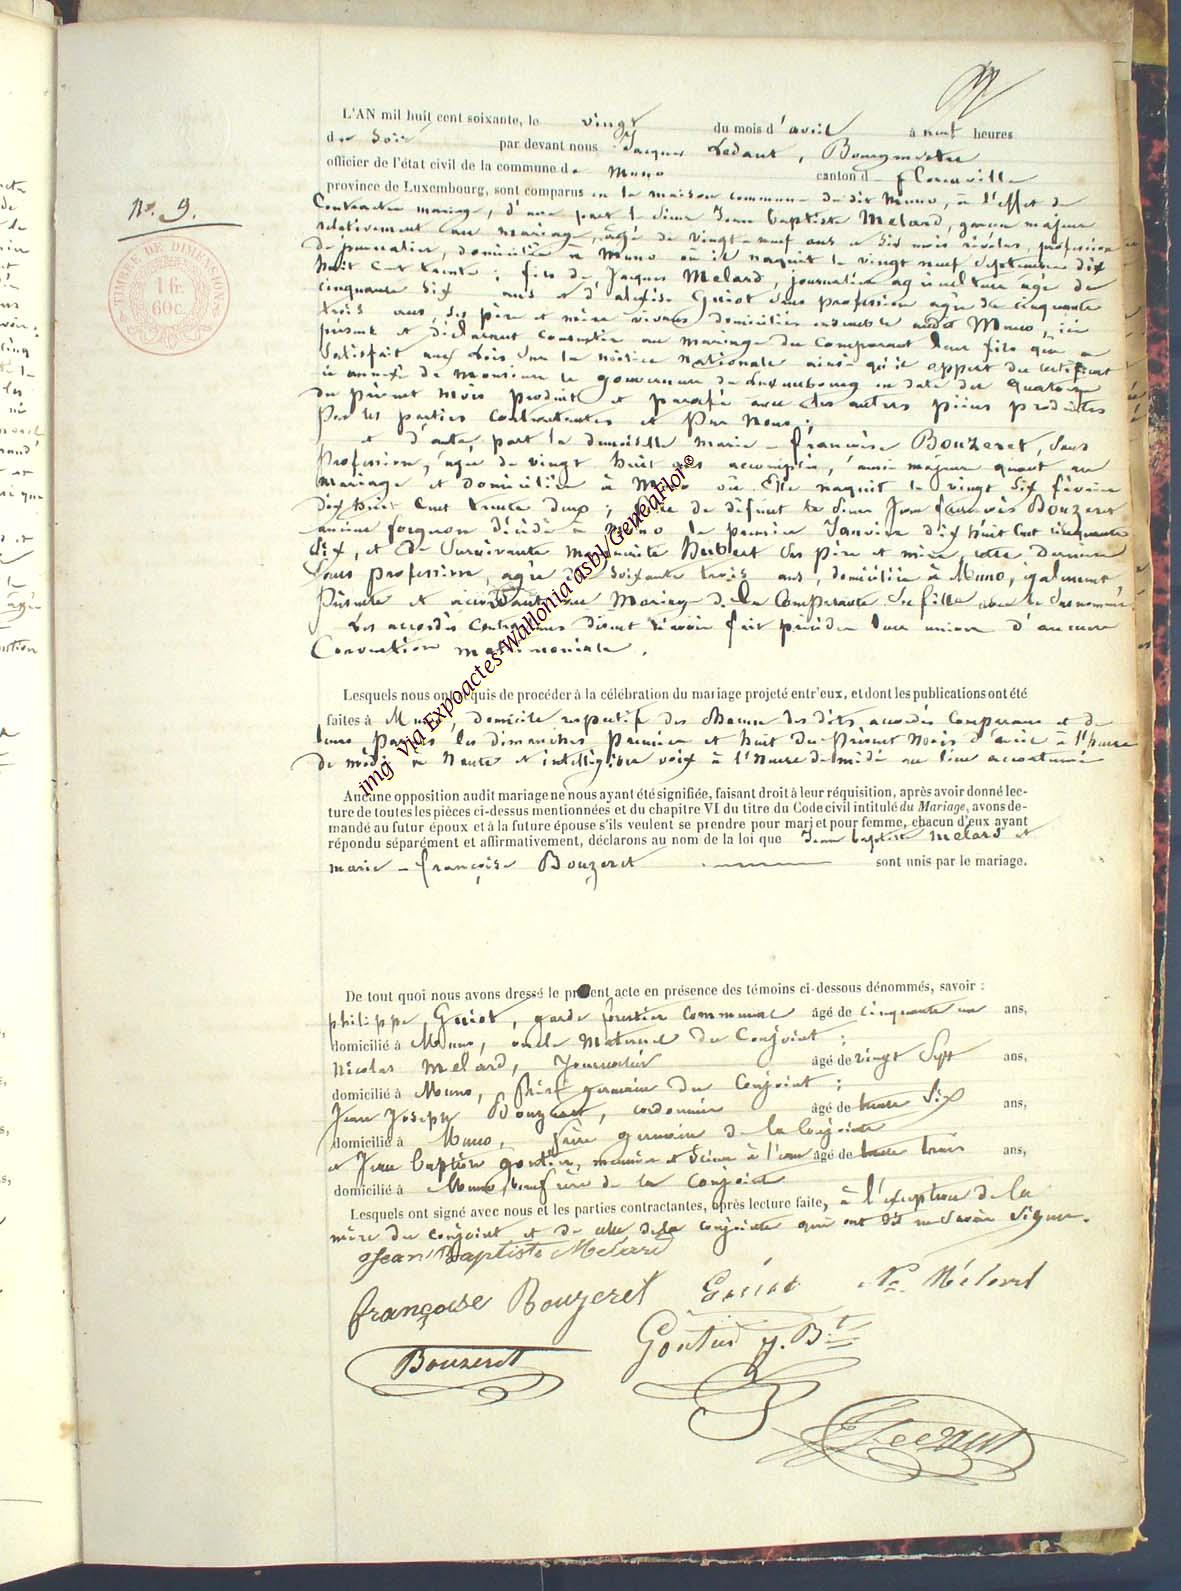 L'AN mil huit cent soixante, le vingt du mois d'avril à neuf heures
du Soir par devant nous Jacques Ledant, Bourgmestre
officier de l'état civil de la commune de Muno canton de florenville
province de Luxembourg, sont comparus en la maison commune du dit Muno, à l'effet de
N.o 9.
TIMBRE DE DIMENSION
1 fr.
60 c.
Contracter mariage, d'une part le Sieur Jean baptiste Melard, garçon majeur
relativement au mariage, âgé de vingt-neuf ans et Six mois révolus, profession
de journalier, domicilié à Muno où il naquit le vingt neuf Septembre dix
huit Cent trente; fils de Jacques Melard, journalier agriculteur âgé de
cinquante Six ans et d'alexise Guiot Sans profession âgée de cinquante
trois ans, Ses père et mère vivans domiciliés ensemble audit Muno, ici
présens et déclarant consentir au mariage du Comparant leur fils qui a
Satisfait aux Lois Sur la milice nationale ainsi qu'il appert du certificat
ci annexé de Monsieur le gouverneur du Luxembourg en date du quatorze
du présent mois produit et paraphé avec les autres pièces produites
Par les parties contractantes et Par Nous;
et d'autre part la demoiselle Marie-françoise Bouzeret, Sans
Profession, âgée de vingt huit ans accomplis, aussi majeure quant au
mariage et domiciliée à Muno où Elle naquit le vingt Six février
dix huit Cent trente deux; fille de défunt le Sieur Jean françois Bouzeret
ancien forgeron décédé à Muno le premier Janvier dix huit Cent cinquante
Six, et de Survivante Marguerite Hubert Ses père et mère, cette dernière
Sans profession, âgée de Soixante trois ans, domiciliée à Muno, également
Présente et accordante au Mariage de la Comparante Sa fille avec le Susnommé.
Les accordés Contractans disent n'avoir fait précéder leur union d'aucune
Convention matrimoniale.
img via Expoactes Wallonia asbl/GeneaFlor©
Lesquels nous ont requis de procéder à la célébration du mariage projeté entr'eux, et dont les publications ont été
faites à Muno, domicile respectif des Chacun des dits accordés Comparans et de
leurs Parties les dimanches Premier et huit du Présent Mois d'avril à l'heure
de midi en Haute et intelligible voix à l'Heure de midi au lieu accoutumé
Aucune opposition audit mariage ne nous ayant été signifiée, faisant droit à leur réquisition, après avoir donné lec-
ture de toutes les pièces ci-dessus mentionnées et du chapitre VI du titre du Code civil intitulé du Mariage, avons de-
mandé au futur époux et à la future épouse s'ils veulent se prendre pour mari et pour femme, chacun d'eux ayant
répondu séparément et affirmativement, déclarons au nom de la loi que Jean baptiste Melard et
marie-françoise Bouzeret sont unis par le mariage.
De tout quoi nous avons dressé le présent acte en présence des témoins ci-dessous dénommés, savoir :
philippe Guiot, garde forestier communal âgé de cinquante un ans,
domicilié à Muno, oncle Maternel du Conjoint;
Nicolas Melard, Journalier âgé de vingt Sept ans,
domicilié à Muno, frère germain du Conjoint;
Jean Joseph Bouzeret, cordonnier âgé de trente Six ans,
domicilié à Muno, frère germain de la Conjointe
et Jean baptiste goutier, meunier et Scieur à l'eau âgé de trente trois ans,
domicilié à Muno, beaufrère de la Conjointe
Lesquels ont signé avec nous et les parties contractantes, après lecture faite, à l'exception de la
mère du conjoint et de celle de la conjointe qui ont dit ne Savoir Signer.
Jean Baptiste Melard
françoise Bouzeret Guiot Nas Mélard
Bouzeret Goutier J. Bte
J Ledant